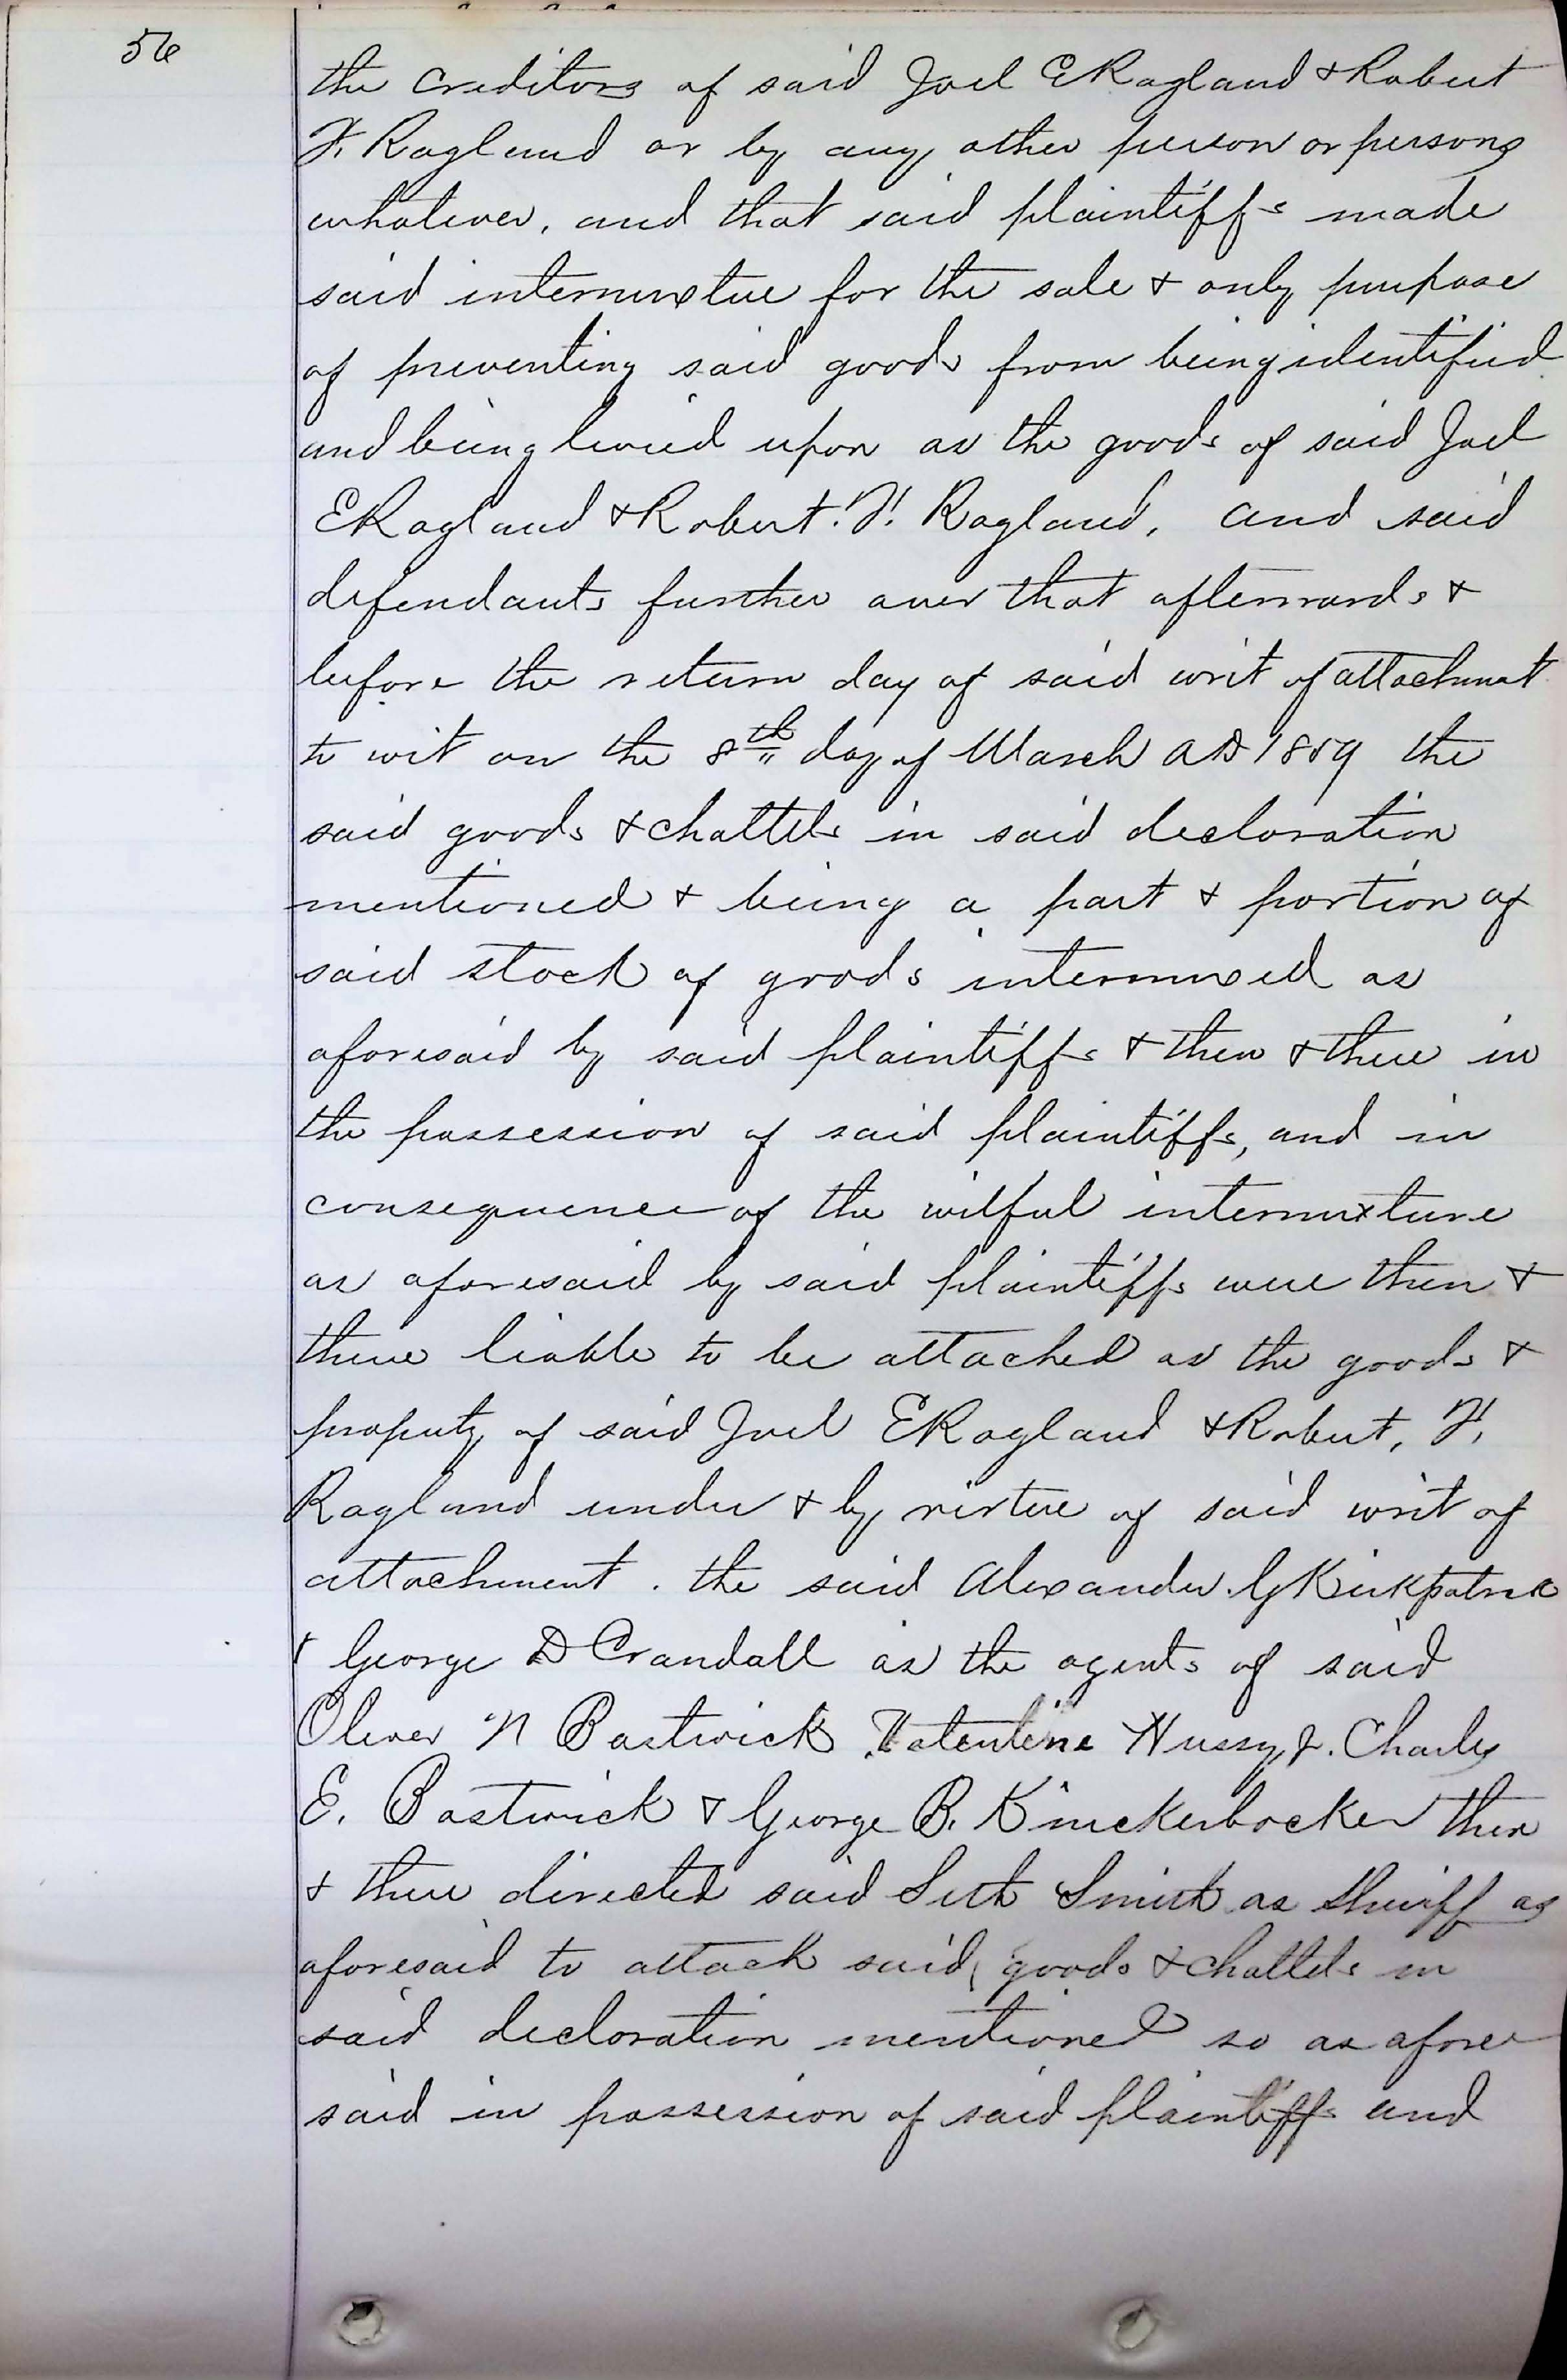 56
the creditors of said Joel E Ragland & Robert
F. Ragland or by any other person or persons
whatever, and that said plaintiffs made
said intermixture for the sole & only purpose
of preventing said goods from being identified
and being levied upon as the goods of said Joel
E Ragland & Robert. F. Ragland, and said
defendants further aver that afterwards &
before the return day of said writ of attachment
to wit on the 8th day of March AD 1859 the
said goods & chattels in said declaration
mentioned & being a part & portion of
said stock of goods intermixed as
aforesaid by said plaintiffs & then & there in
the possession of said plaintiffs, and in
consequence of the wilful intermixture
as aforesaid by said plaintiffs were then &
there liable to be attached as the goods &
property of said Joel E Ragland & Robert, F,
Ragland under & by virtue of said writ of
attachment. the said Alexander. G Kirkpatrick
& George D Crandall as the agents of said
Oliver N Bostwick Valentine Hussy Jr. Charles
E. Bostwick & George B. Knickerbocker then
& there directed said Seth Smith as Sheriff as
aforesaid to attach said goods & chattels in
said declaration mentioned so as afore
said in possession of said plaintiffs and